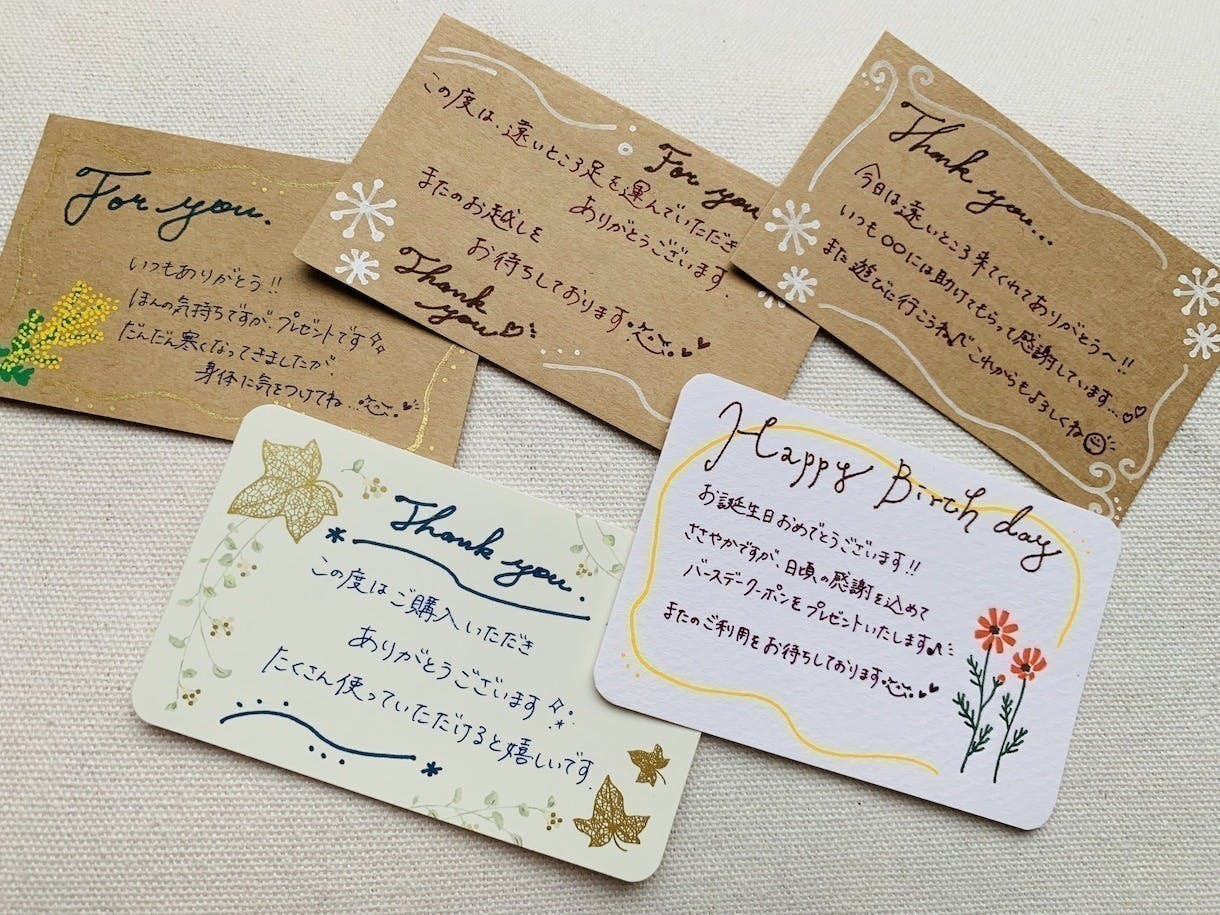 For you.
いつもありがとう!!
ほんの気持ちですが、プレゼントです
だんだん寒くなってきましたが、
身体に気をつけてね…
この度は、遠いところ足を運んでいただき
For you
ありがとうございます.
またのお越しを
お待ちしております
Thank
you
Thank you...
今日は遠いところ来てくれてありがとう〜!!
いつも〇〇には助けてもらって感謝しています...
また遊びに行こうね♪ これからもよろしくね
Thank you.
この度はご購入いただき
ありがとうございます
たくさん使っていただけると嬉しいです
Happy Birth day
お誕生日おめでとうございます!!
ささやかですが、日頃の感謝を込めて
バースデークーポンをプレゼントいたします♪
またのご利用をお待ちしております